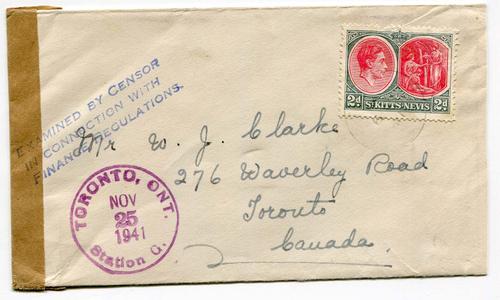 2d ST KITTS-NEVIS 2d
EXAMINED BY CENSOR
IN CONNECTION WITH
FINANCE REGULATIONS.
Mr W. J. Clarke
276 Waverley Road
Toronto
Canada.
TORONTO, ONT.
NOV
25
1941
Station G.